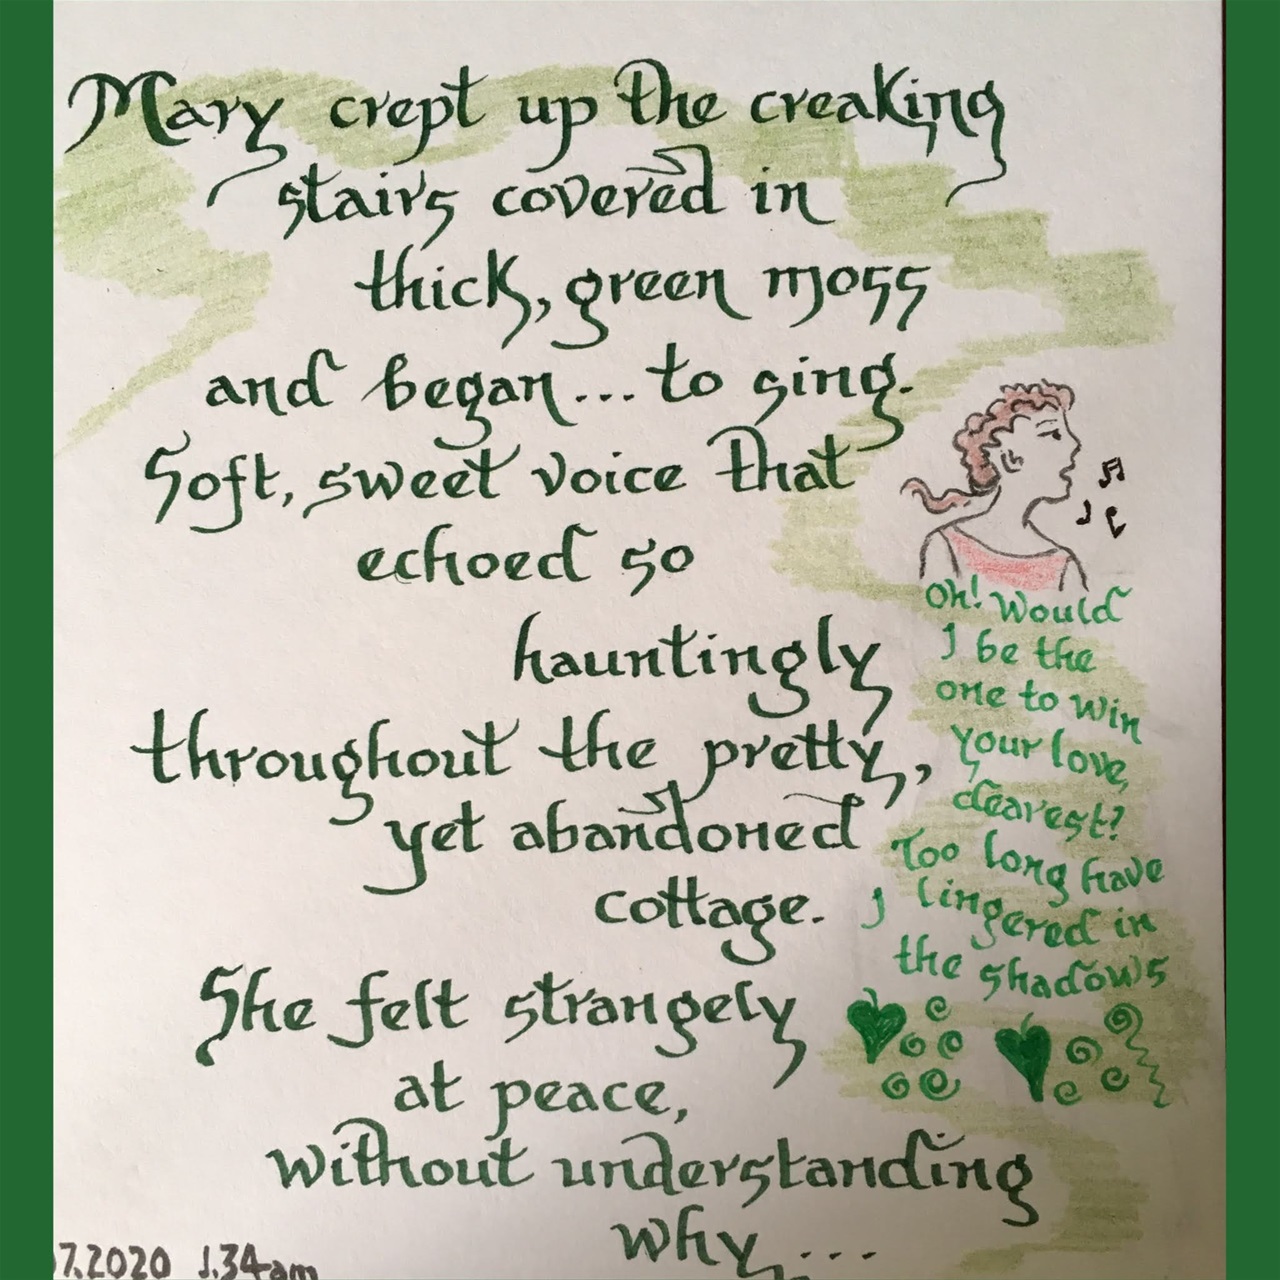 Mary crept up the creaking
stairs covered in
thick, green moss
and began... to sing.
Soft, sweet voice that
echoed so
hauntingly
throughout the pretty,
yet abandoned
cottage.
She felt strangely
at peace,
without understanding
why...
Oh! Would
I be the
one to win
your love,
dearest?
Too long have
I lingered in
the shadows
7.2020 1.34am